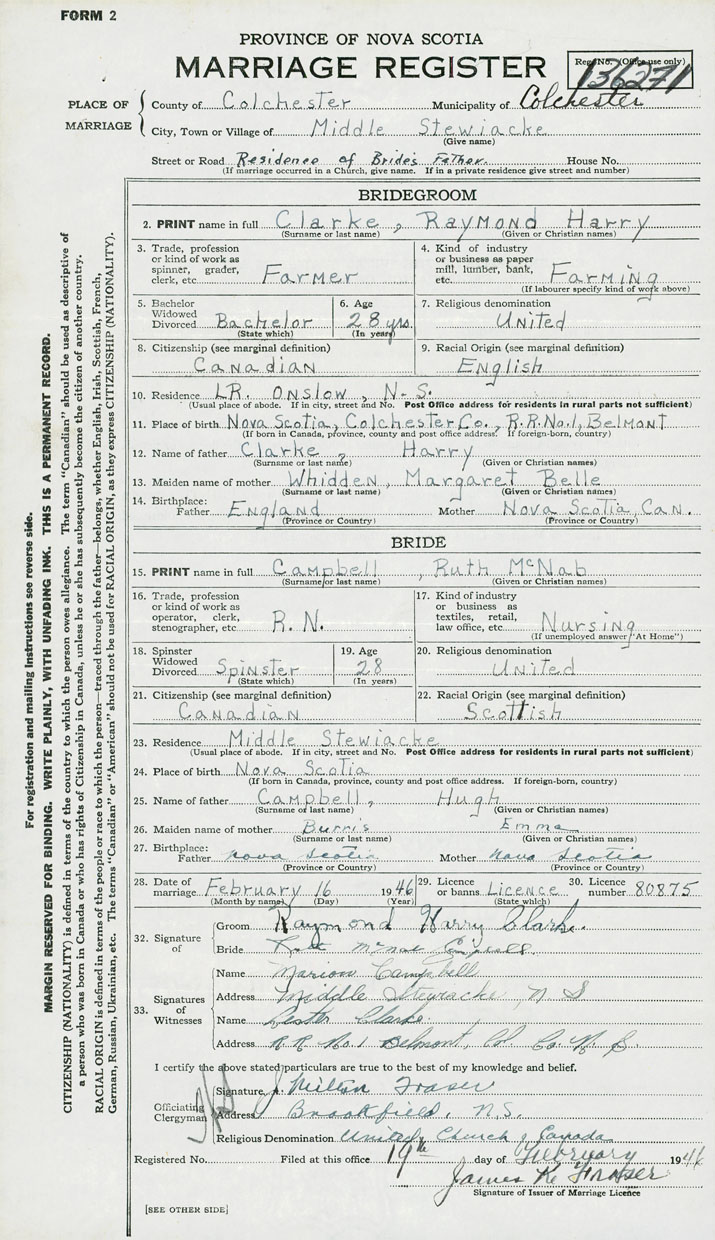 FORM 2
PROVINCE OF NOVA SCOTIA
MARRIAGE REGISTER
Reg. No. (Office use only)
136271
PLACE OF MARRIAGE
County of Colchester Municipality of Colchester
City, Town or Village of Middle Stewiacke
(Give name)
Street or Road Residence of Bride's Father. House No.
(If marriage occurred in a Church, give name. If in a private residence give street and number)
BRIDEGROOM
2. PRINT name in full Clarke, Raymond Harry
(Surname or last name) (Given or Christian names)
3. Trade, profession or kind of work as spinner, grader, clerk, etc. Farmer
4. Kind of industry or business as paper mill, lumber, bank, etc. Farming
(If labourer specify kind of work above)
5. Bachelor Widowed Divorced Bachelor
(State which)
6. Age 28 yrs.
(In years)
7. Religious denomination
United
8. Citizenship (see marginal definition)
Canadian
9. Racial Origin (see marginal definition)
English
10. Residence LR. Onslow, N-S.
(Usual place of abode. If in city, street and No. Post Office address for residents in rural parts not sufficient)
11. Place of birth Nova Scotia, Colchester Co., R.R.No.1, Belmont
(If born in Canada, province, county and post office address. If foreign-born, country)
12. Name of father Clarke, Harry
(Surname or last name) (Given or Christian names)
13. Maiden name of mother Whidden, Margaret Belle
(Surname or last name) (Given or Christian names)
14. Birthplace:
Father England Mother Nova Scotia, Can.
(Province or Country) (Province or Country)
BRIDE
15. PRINT name in full Campbell, Ruth McNab
(Surname or last name) (Given or Christian names)
16. Trade, profession or kind of work as operator, clerk, stenographer, etc. R.N.
17. Kind of industry or business as textiles, retail, law office, etc. Nursing
(If unemployed answer "At Home")
18. Spinster Widowed Divorced Spinster
(State which)
19. Age 28
(In years)
20. Religious denomination
United
21. Citizenship (see marginal definition)
Canadian
22. Racial Origin (see marginal definition)
Scottish
23. Residence Middle Stewiacke
(Usual place of abode. If in city, street and No. Post Office address for residents in rural parts not sufficient)
24. Place of birth Nova Scotia
(If born in Canada, province, county and post office address. If foreign-born, country)
25. Name of father Campbell, Hugh
(Surname or last name) (Given or Christian names)
26. Maiden name of mother Burris Emma
(Surname or last name) (Given or Christian names)
27. Birthplace:
Father Nova Scotia Mother Nova Scotia
(Province or Country) (Province or Country)
28. Date of marriage February 16 1946
(Month by name) (Day) (Year)
29. Licence or banns Licence
(State which)
30. Licence number 80875
32. Signature of
Groom Raymond Harry Clarke.
Bride Ruth McNab Campbell.
33. Signatures of Witnesses
Name Marion Campbell
Address Middle Stewiacke, N S
Name Lester Clarke
Address R.R. No. 1 Belmont, Col. Co. N. S.
I certify the above stated particulars are true to the best of my knowledge and belief.
Officiating Clergyman
Signature J. Milton Fraser
Address Brookfield, N.S.
Religious Denomination United Church of Canada
Registered No. Filed at this office 19th day of February 1946
James K. Fraser
Signature of Issuer of Marriage Licence
[SEE OTHER SIDE]
For registration and mailing instructions see reverse side.
MARGIN RESERVED FOR BINDING. WRITE PLAINLY, WITH UNFADING INK. THIS IS A PERMANENT RECORD.
CITIZENSHIP (NATIONALITY) is defined in terms of the country to which the person owes allegiance. The term "Canadian" should be used as descriptive of
a person who was born in Canada or who has rights of Citizenship in Canada, unless he or she has subsequently become the citizen of another country.
RACIAL ORIGIN is defined in terms of the people or race to which the person—traced through the father—belongs, whether English, Irish, Scottish, French,
German, Russian, Ukrainian, etc. The terms "Canadian" or "American" should not be used for RACIAL ORIGIN, as they express CITIZENSHIP (NATIONALITY).